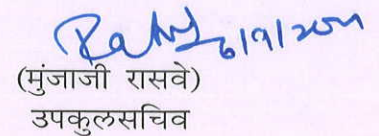 6/9/2011
(मुंजाजी रासवे)
उपकुलसचिव